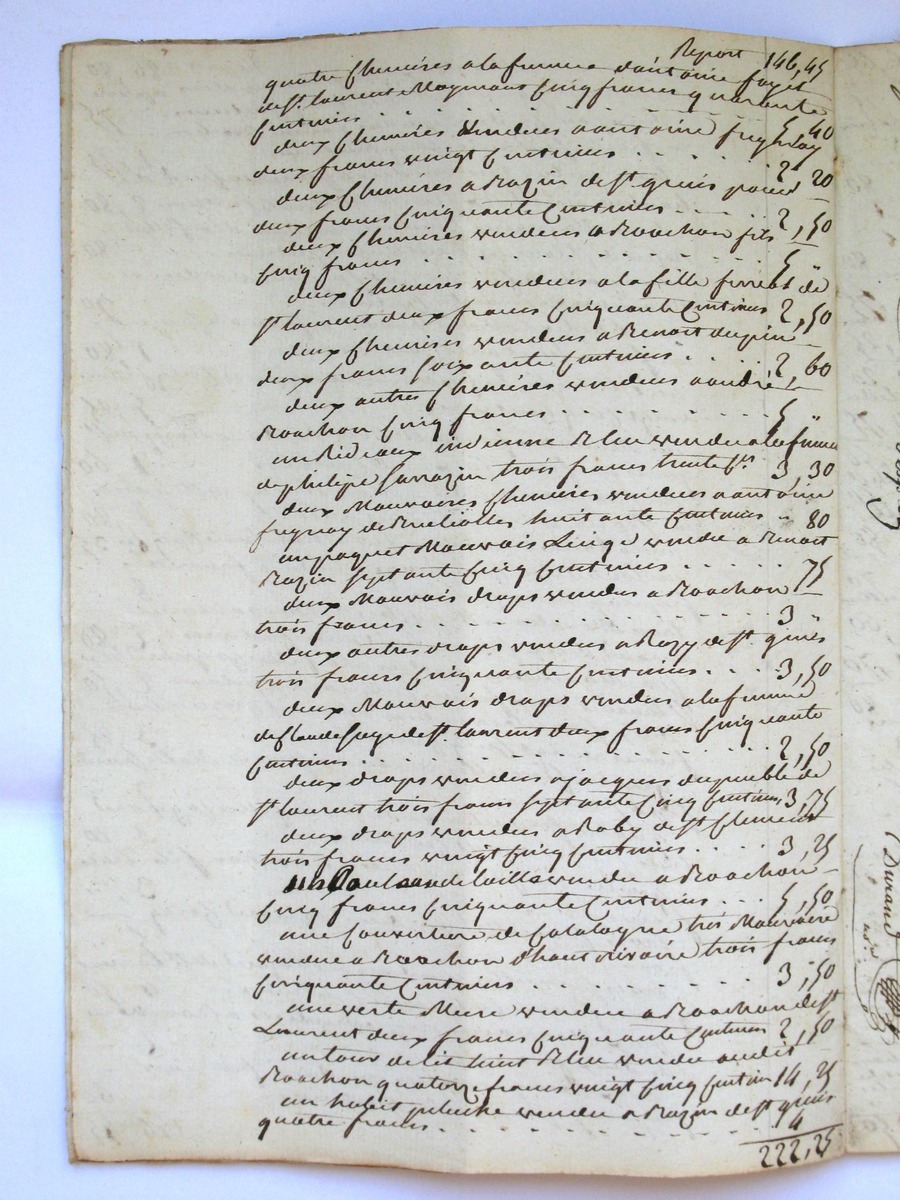 Report 146,45
quatre Chemises a la femme d'antoine fayet
de st. laurent Moyenant Cinq francs quarante
Centimes . . . . . . . . . . . 5, 40
deux Chemises Vendues a antoine fughnay
deux francs vingt Centimes . . . . . 2, 20
deux Chemises a Razin de st. genis pour
deux francs Cinquante Centimes . . . . 2, 50
deux Chemises vendues a Roachon fils
Cinq francs . . . . . . . . . . . 5 "
deux Chemises vendues a la fille de
st laurent deux francs Cinquante Centimes 2, 50
deux Chemises vendues a Benoit dupin
deux francs soixante Centimes . . . . 2, 60
deux autres Chemises vendues a andré
Roachon Cinq francs . . . . . . . . 5 "
un Rideaux indienne Bleu vendu a la femme
de philipe Sarrazin trois francs trente Cmes. 3, 30
deux Mauvaises Chemises vendues a antoine
huitante Centimes . . 80
un paquet Mauvais Linge vendu a Benoit
Razin septante Cinq Centimes . . . . . 75
deux Mauvais draps vendus a Roachon
trois francs . . . . . . . . . . . 3 "
deux autres draps vendus a Razy de st. genis
trois francs Cinquante Centimes . . . . 3, 50
deux Mauvais draps vendus a la femme
de Claude Sage de st. laurent deux francs Cinquante
Centimes . . . . . . . . . . . . 2, 50
deux draps vendus a jacques dupuble de
st laurent trois francs septante Cinq Centimes, 3, 75
deux draps vendus a Raby de st Clement
trois francs vingt Cinq Centimes . . . . 3, 25
un vendu a Roachon
Cinq francs Cinquante Centimes . . . 5, 50
une Couverture de Catalogne très Mauvaise
vendue a Roachon d'hauterivoire trois francs
Cinquante Centimes . . . . . . . . . 3, 50
une verte Mere vendue a Roachon de st
Laurent deux francs Cinquante Centimes 2, 50
un tour de lit teint Bleu vendu au dit
Roachon quatorze francs vingt Cinq Centim 14, 25
un habit peluche vendu a Razin de st genis
quatre francs . . . . . . . . . . . 4
222, 25
Durand